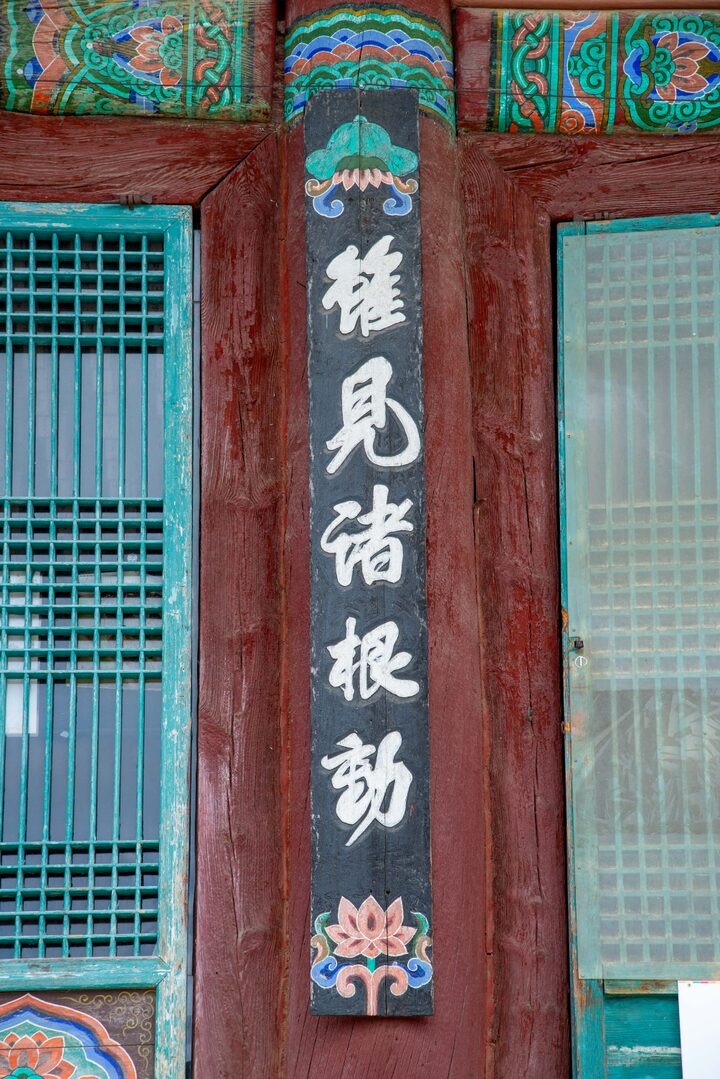 雖見諸根動